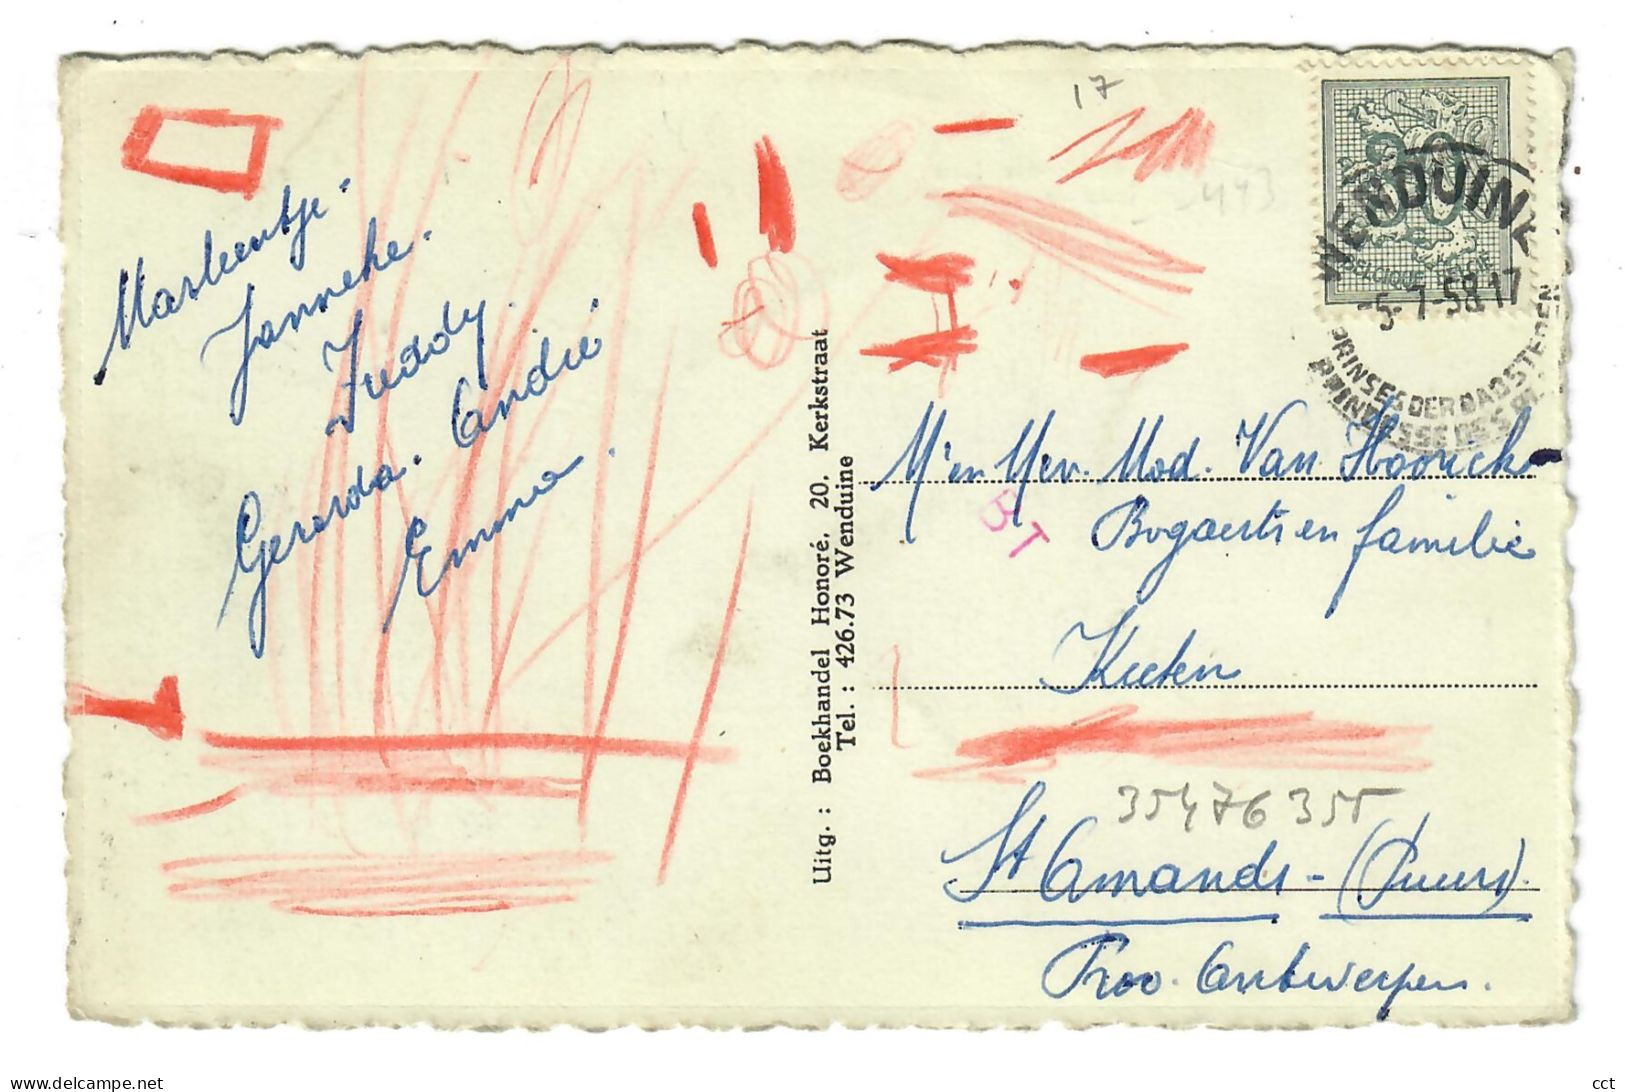 Marleentje.
Janneke.
Freddy.
Gerarda. André
Emma.
Uitg. : Boekhandel Honoré, 20, Kerkstraat
Tel. : 426.73 Wenduine
17
443
80
BELGIQUE
WENDUINE
-5-7-58 17
PRINSES DER BADSTEDEN
PRINCESSE DES
M' en Mev. Mod. Van Hoorick
Bogaerts en familie
BT
Keeten
35476 355
St Amands - (Puurs).
Prov. Antwerpen.
Delcampe.net
cct